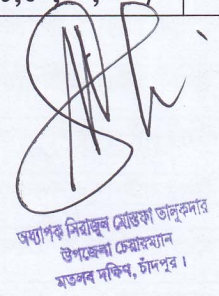 অধ্যাপক সিরাজুল মোস্তফা তালুকদার
উপজেলা চেয়ারম্যান
মতলব দক্ষিণ, চাঁদপুর।